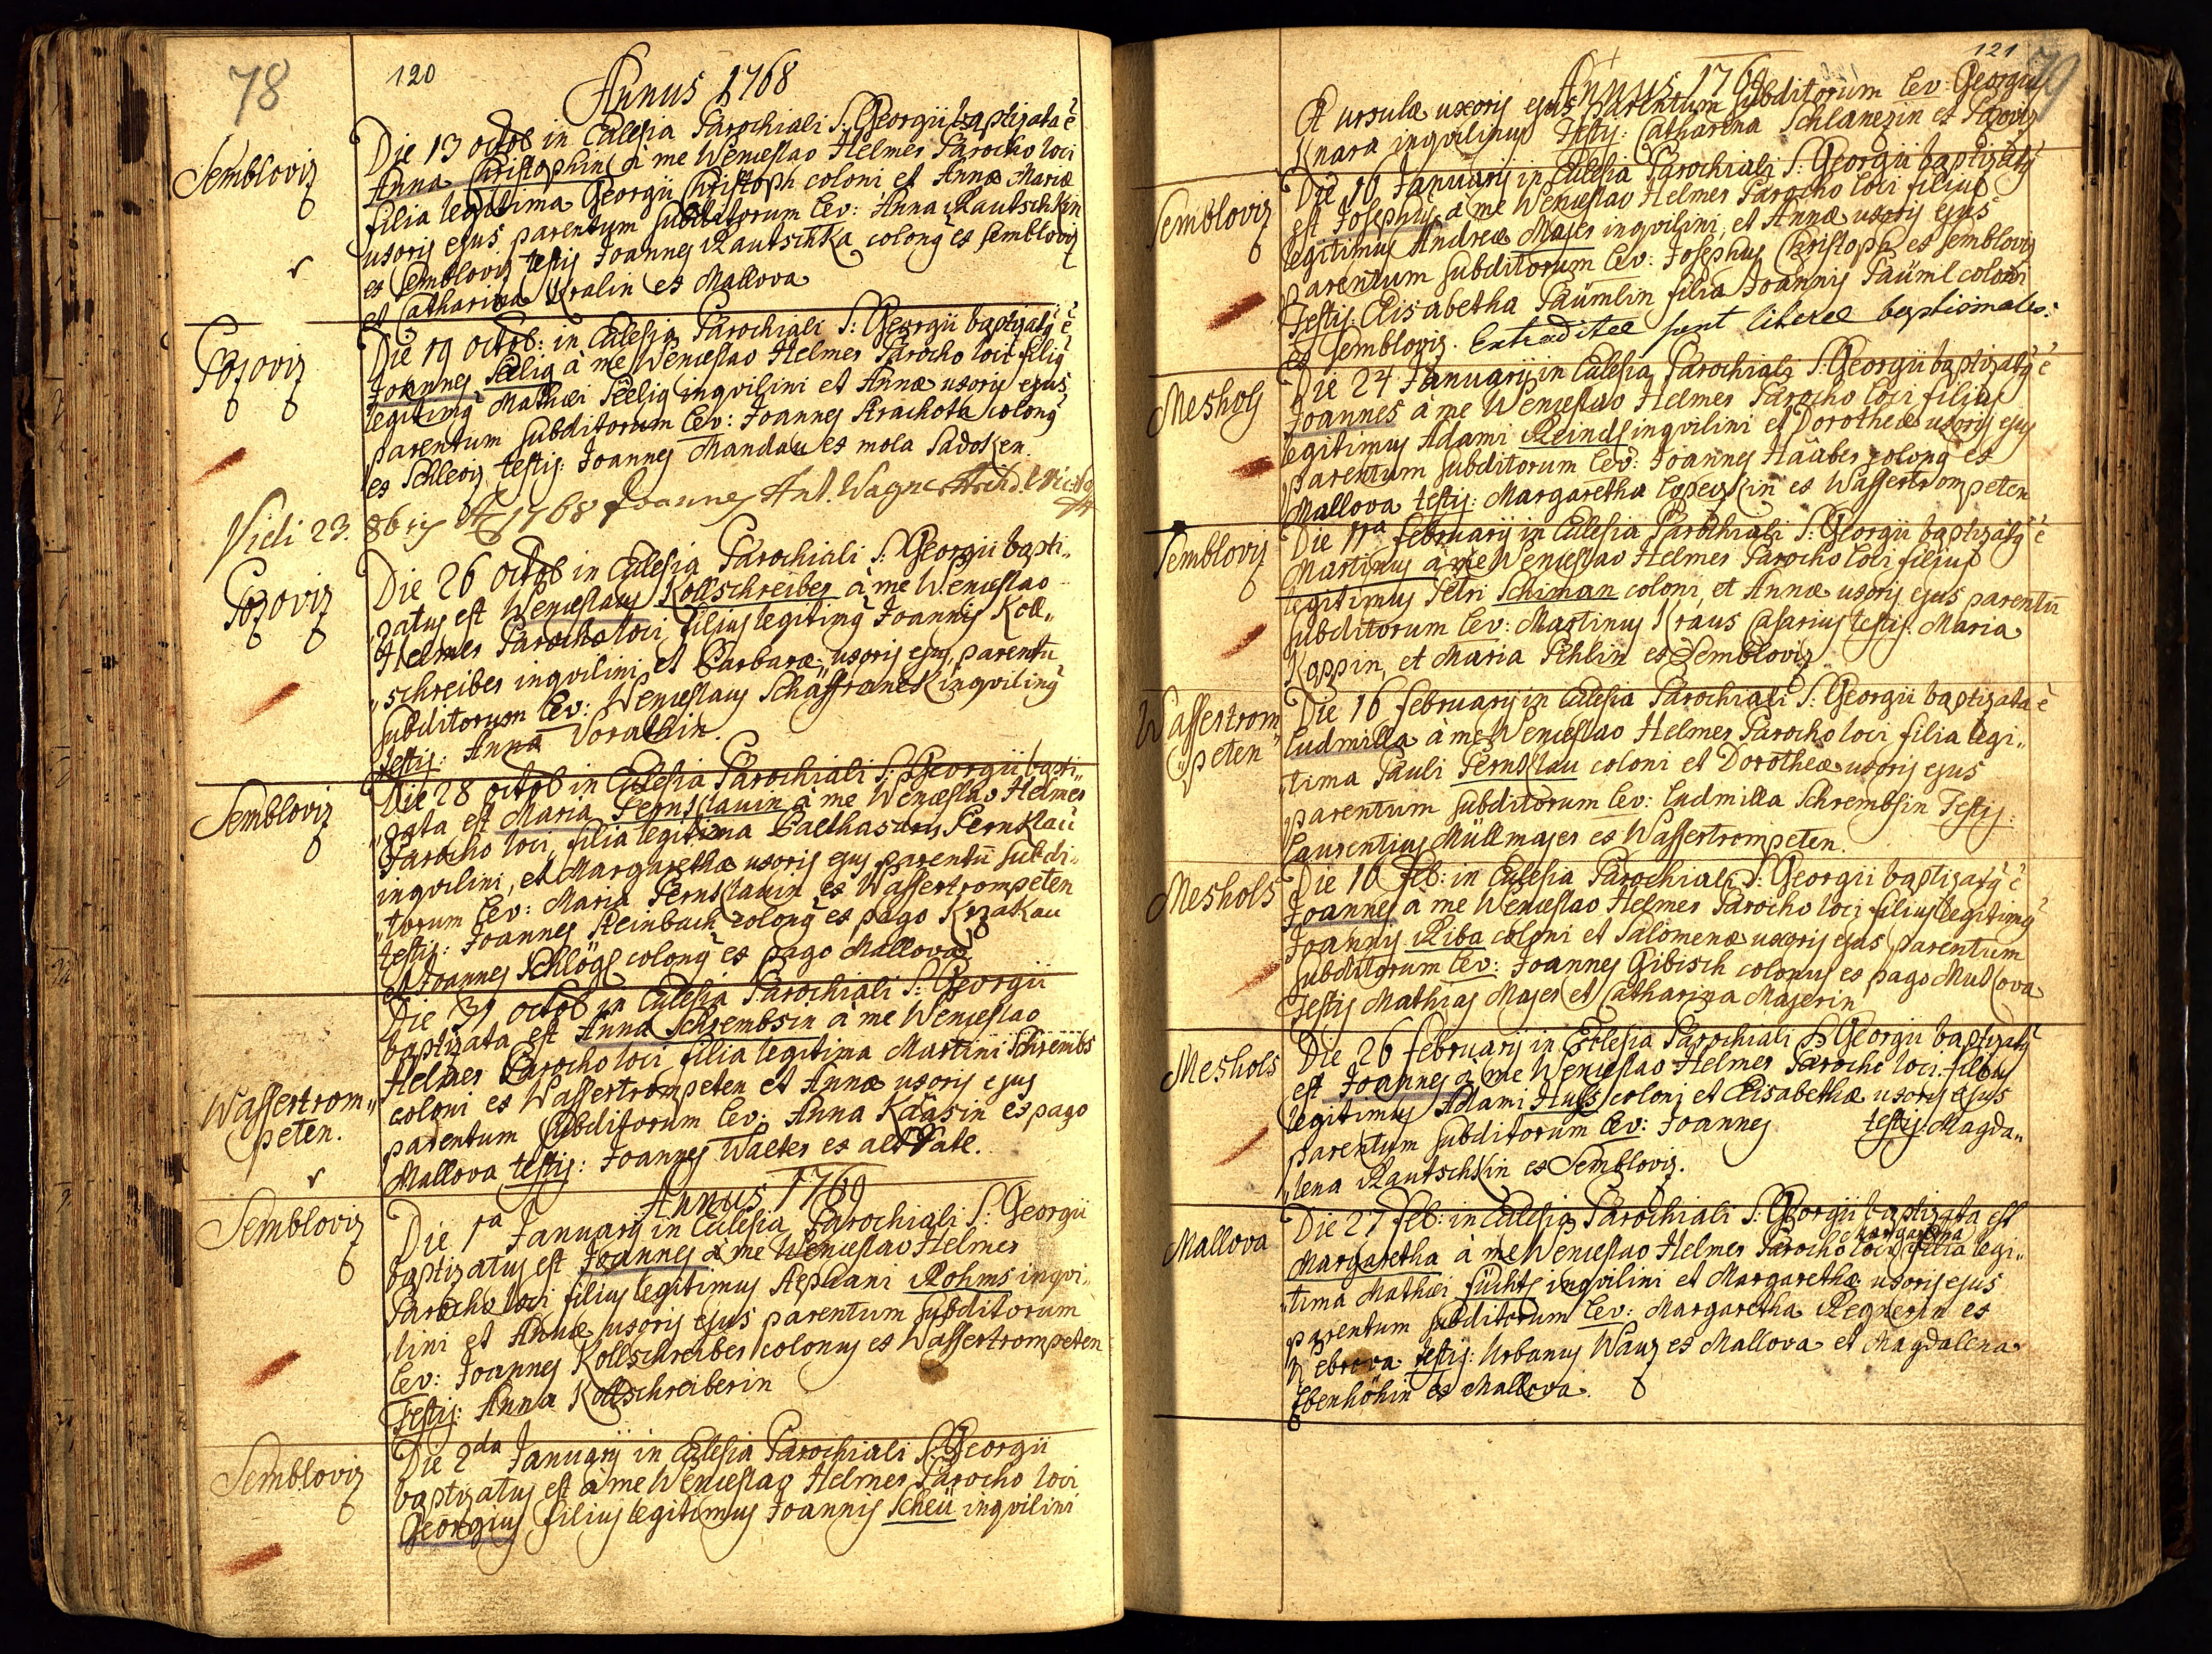 78
120
Annus 1768
Sembloviz
Die 13 octob in Eclesia Parochiali S: Georgii baptizata ē
Anna Christophin à me Wenceslao Helmer Parocho loci
filia legitima Georgii Christoph coloni et Annæ Mariæ
uxoris ejus parentum subditorum Lev: Anna Rautschkin
ex Sembloviz testis Joannes Rautschka colonq ex Sembloviz
et Catharina Kralin ex Mallova
Pozoviz
Die 19 octob: in Eclesia Parochiali S: Georgii baptizatq ē
Joannes Seelig à me Wenceslao Helmer Parocho loci filiq
legitimq Mathæi Seelig inqvilini et Annæ uxoris ejus
parentum subditorum Lev: Joannes Strachota colonq
ex Schleviz testis: Joannes Mandau ex mola Sadoken.
Vidi 23. 8bris Aō 1768 Joannes Ant. Wagner Archid.
Pozoviz
Die 26 octob in Eclesia Parochiali S: Georgii bapti„
„zatus est Wenceslaus Kollschreiber à me Wenceslao
Helmer Parocho loci, filius legitimq Joannis Koll„
„schreiber inqvilini et Barbaræ uxoris ejus, parentū
subditorum Lev: Wenceslaus Schaffranek inqvilinq
testis: Anna Vorathin.
Sembloviz
Die 28 octob in Eclesia Parochiali S: Georgii bapti„
„zata est Maria Pernklauin à me Wenceslao Helmer
Parocho loci, filia legitima Balthasaris Pernklau
inqvilini, et Margarethæ uxoris ejus parentū subdi„
„torum Lev: Maria Pernklauin ex Wassertrompeten
testis: Joannes Steinbach colonq ex pago Krzakau
et Joannes Schlögl colonq ex pago Mallova
Wassertrom„
peten.
Die 31 octob in Eclesia Parochiali S: Georgii
baptizata est Anna Schrembsin à me Wenceslao
Helmer Parocho loci filia legitima Martini Schrembs
coloni ex Wassertrompeten et Annæ uxoris ejus
parentum subditorum Lev: Anna Kääsin ex pago
Mallova testis: Joannes Walter ex alt
Annus 1769
Sembloviz
Die 1ra Januarij in Eclesia Parochiali S: Georgii
baptizatus est Joannes à me Wenceslao Helmer
Parocho loci filius legitimus Stephani Rohms inqvi„
„lini et Annæ uxoris ejus parentum subditorum
Lev: Joannes Kollschreiber colonus ex Wassertrompeten
Testis: Anna Kollschreiberin
Sembloviz
Die 2da Januarij in Eclesia Parochiali S: Georgii
baptizatus est à me Wenceslao Helmer Parocho loci
Georgius filius legitimus Joannis Scheü inqvilini
121
79
Annus 1769
Et ursulæ uxoris ejus parentum subditorum Lev: Georgius
Knara inqvilinus Testis: Catharina Schlanezin ex Pozoviz
Sembloviz
Die 16 Januarij in Eclesia Parochiali S: Georgii baptizatq
est Josephus à me Wenceslao Helmer Parocho loci filius
legitimus Andreæ Majer inqvilini, et Annæ uxoris ejus
parentum subditorum Lev: Josephus Christoph ex Sembloviz
Testis Elisabetha Päümlin filia Joannis Päüml coloni
ex Sembloviz. Extraditæ sunt literæ baptismales.
Meshols
Die 24 Januarij in Eclesia Parochiali S: Georgii baptizatq ē
Joannes à me Wenceslao Helmer Parocho loci filius
legitimus Adami Reindl inqvilini et Dorotheæ uxoris ejus
parentum subditorum Lev: Joannes Haüber colonq ex
Mallova testis: Margaretha ex Wassertrompeten
Sembloviz
Die 11ra februarij in Eclesia Parochiali S: Georgii baptizatq ē
Martinus à me Wenceslao Helmer Parocho loci filius
legitimus Petri Schiman coloni, et Annæ uxoris ejus parentū
subditorum Lev: Martinus Kraus Casarius testis: Maria
Koppin, et Maria Pehlin ex Sembloviz
Wassertrom„
„peten
Die 16 februarij in Eclesia Parochiali S: Georgii baptizata ē
Ludmilla à me Wenceslao Helmer Parocho loci filia legi„
„tima Pauli Pernklau coloni et Dorotheæ uxoris ejus
parentum subditorum Lev: Ludmilla Schrembsin Testis:
Laurentius Müllmajer ex Wassertrompeten.
Meshols
Die 16 feb: in Eclesia Parochiali S: Georgii baptizatq ē
Joannes à me Wenceslao Helmer Parocho loci filius legitimq
Joannis Riba coloni et Salomenæ uxoris ejus parentum
subditorum Lev: Joannes Gibisch colonus ex pago Mutlova
Testis Mathias Majer et Catharina Majerin
Meshols
Die 26 februarij in Eclesia Parochiali S: Georgii baptizatq
est Joannes à me Wenceslao Helmer Parocho loci filius
legitimus Adami Huss coloni et Elisabethæ uxoris ejus
parentum subditorum Lev: Joannes testis Magda„
„lena Rautschkin ex Sembloviz.
Mallova
Die 27 feb: in Eclesia Parochiali S: Georgii baptizata est
Margaretha
Margaretha à me Wenceslao Helmer Parocho loci filia legi„
„tima Mathæi fücht inqvilini et Margarethæ uxoris ejus
parentum subditorum Lev: Margaretha Regnerin ex
testis: Urbanus Wanz ex Mallova et Magdalena
Ebenhöhin ex Mallova.